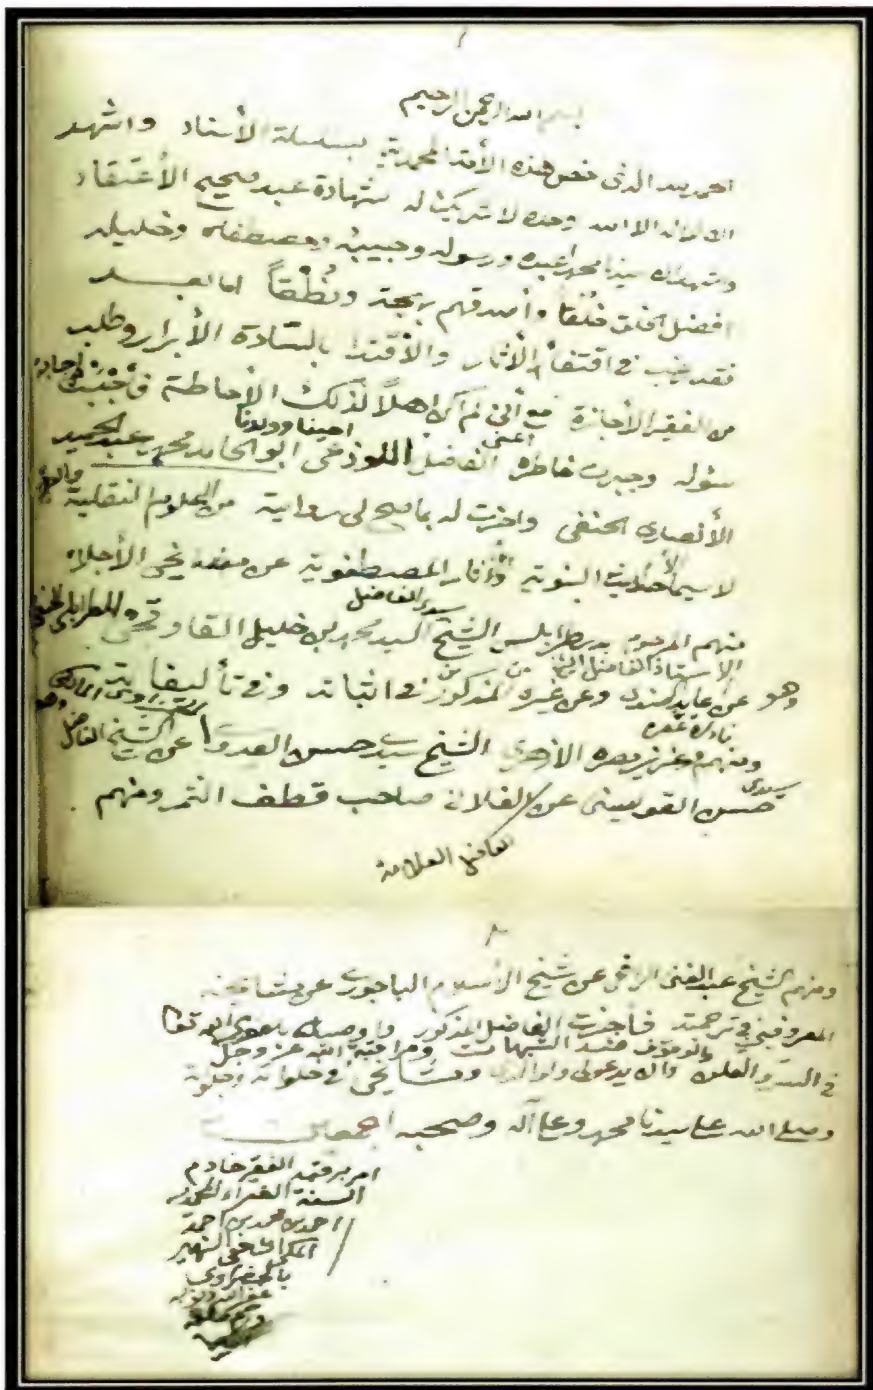 ١
بسم الله الرحمن الرحيم
الحمد لله الذي خص هذه الأمة المحمدية بسلسلة الأسناد واشهد
ان لا اله الا الله وحده لا شريك له شهادة عبد صحيح الأعتقاد
واشهد ان سيدنا محمدا عبده ورسوله وحبيبه ومصطفاه وخليله
افضل الخلق خُلُقا وأصدقهم لهجة ونُطْقاً اما بعد
فقد رغب في اقتفاء الأثار والأقتدا بالسادة الأبرار وطلب
من الفقير الأجازة مع أنى لم اكن اهلاً لذلك الأحاطة فأجَبْت لاجابة
سؤله وجبرت خاطره اعنى الفاضل اللوذعى اخينا وولدنا ابو المحامد محمد عبد الحميد
الأنصارى الحنفى واجزت له بما صح لى رواية من العلوم النقلية
لا سيما الأحاديث النبوية والأثار المصطفوية عن مشايخى الأجلاء
منهم المرحوم بطرابلس الشيخ سيدى الفاضل السيد محمد بن خليل القاوقجى الطرابلسى الحنفى
وهو عن الاستاذ الفاضل الشيخ عابد السندى وعن غيره من المذكورين في اثباته وفى تأليفاته
ومنهم عزيز مصره نادرة عصره الأزهري الشيخ سيدى حسن العدوى عن الشيخ الفاضل
سيدى حسن القويسنى عن الفلانى صاحب قطف الثمر ومنهم
الفاضل العلامة
٢
ومنهم الشيخ عبد الغنى الرافعى عن شيخ الأسلام الباجورى عن مشايخه
المعروفين في ترجمته فأجزت الفاضل المذكور واوصيه بتقوى الله تعا
في السر والعلن والوقوف عند الشبهات ومراقبة الله عز وجل
وان يدعو لى ولوالدى ومشايخى في خلواته وجلواته
وصلى الله على سيدنا محمد وعلى آله وصحبه اجمعين
امر برقمه الفقير خادم
السنة الغراء
احمد بن محمد بن احمد
المكى الشافعى الشهير
بالحضراوى
عفا الله